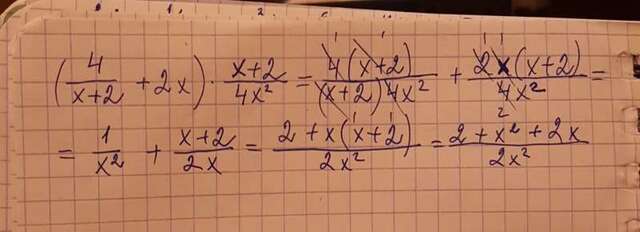 (4/(x+2) + 2x) · (x+2)/(4x²) = (4(x+2))/((x+2)4x²) + (2x(x+2))/(4x²) =
= 1/x² + (x+2)/(2x) = (2+x(x+2))/(2x²) = (2+x²+2x)/(2x²)